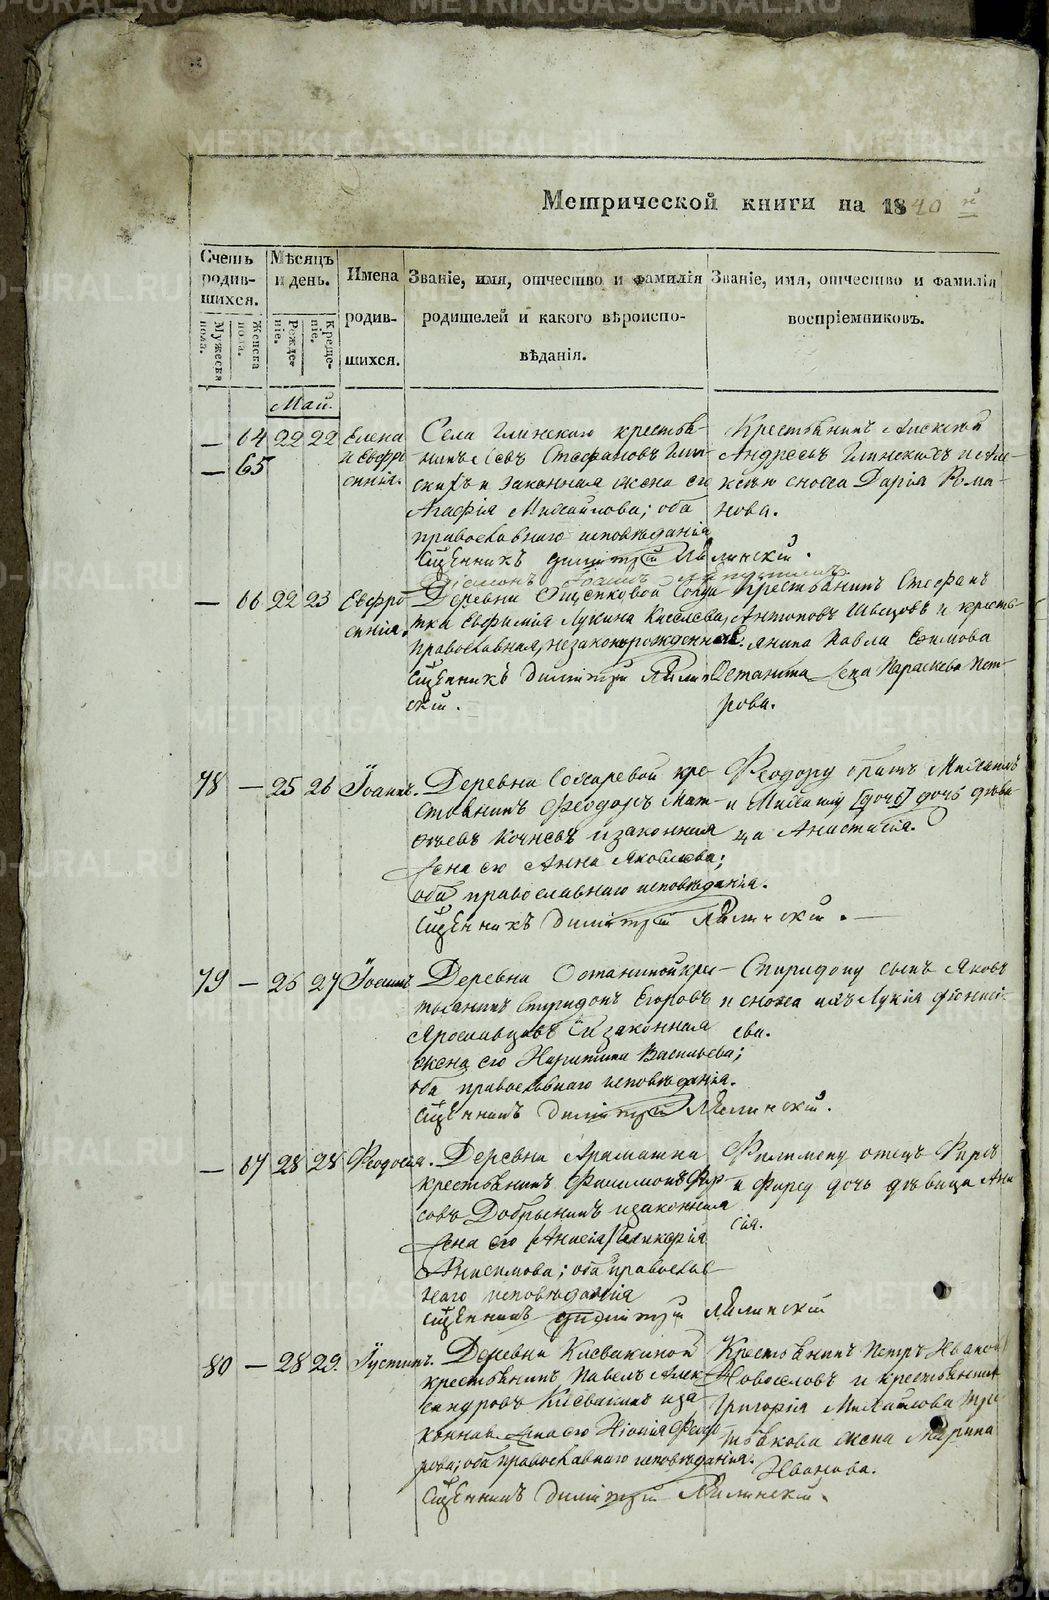 METRIKI.GASO-URAL.RU
Метрической книги на 1840 й
Счетъ родив-шихся.
Мужеска пола.
Женска пола.
Мѣсяцъ и день.
Рожде-нiе.
Креще-нiе.
Имена родив-шихся.
Званiе, имя, отчество и фамилiя
родителей и какого вѣроиспо-
вѣданiя.
Званiе, имя, отчество и фамилiя
воспрiемниковъ.
Май.
— 64 22 22 Елена
— 65 и Евфро
синiя.
Села Глинскаго крестья-
нинъ Стефановъ Глин-
скихъ и законная жена его
Агафiя Михайлова; оба
православнаго исповѣданiя
Священникъ Димитрiй
Крестьянинъ Алексѣй
Андреевъ Глинскихъ и Але-
ксѣю сноха Дарiя Рома-
нова.
— 66 22 23 Евфро
синiя.
Деревни Ощепковой
Евфимiя Лукина
православная, незаконнорожденная.
Священникъ Димитрiй
Крестьянинъ Стефанъ
Антоновъ Швецовъ и кресть-
янина Павла Ефимова
Останина жена Параскева Пет-
рова.
78 — 25 26 Iоаннъ.
Деревни Сохаревой кре-
стьянинъ Феодоръ Мат-
вѣевъ Кочневъ и законная
жена его Анна Яковлева;
оба православнаго исповѣданiя.
Священникъ Димитрiй
Феодору братъ Михаилъ
и Михаилу [дочь] дочь дѣви
ца Анастасiя.
79 — 26 27 Iоаннъ
Деревни Останиной кре-
стьянинъ Спиридонъ Егоровъ
Ярославцовъ и законная
жена его Харитина Васильева;
оба православнаго исповѣданiя.
Священникъ Димитрiй
Спиридону сынъ Яковъ
и сноха ихъ Лукiя Дiонисi-
ева.
— 67 28 28 Феодосiя.
Деревни Арамашка
крестьянинъ Филимонъ Фир-
совъ Добрынинъ и законная
жена его [Анисiя] Гликерiя
Анисимова; оба православ-
наго исповѣданiя
Священникъ Димитрiй
Филимону отецъ Фирсъ
и Фирсу дочь дѣвица Ани
сiя.
80 — 28 29. Iустинъ.
Деревни Клевакиной
крестьянинъ Павелъ Алек-
сандровъ Клевакинъ и за-
конная жена его
рова; оба православнаго исповѣданiя.
Священникъ Димитрiй
Крестьянинъ Петръ Ивановъ
Новоселовъ и крестьянина
Григорiя Михайлова Тре-
тьякова жена Марина
Иванова.